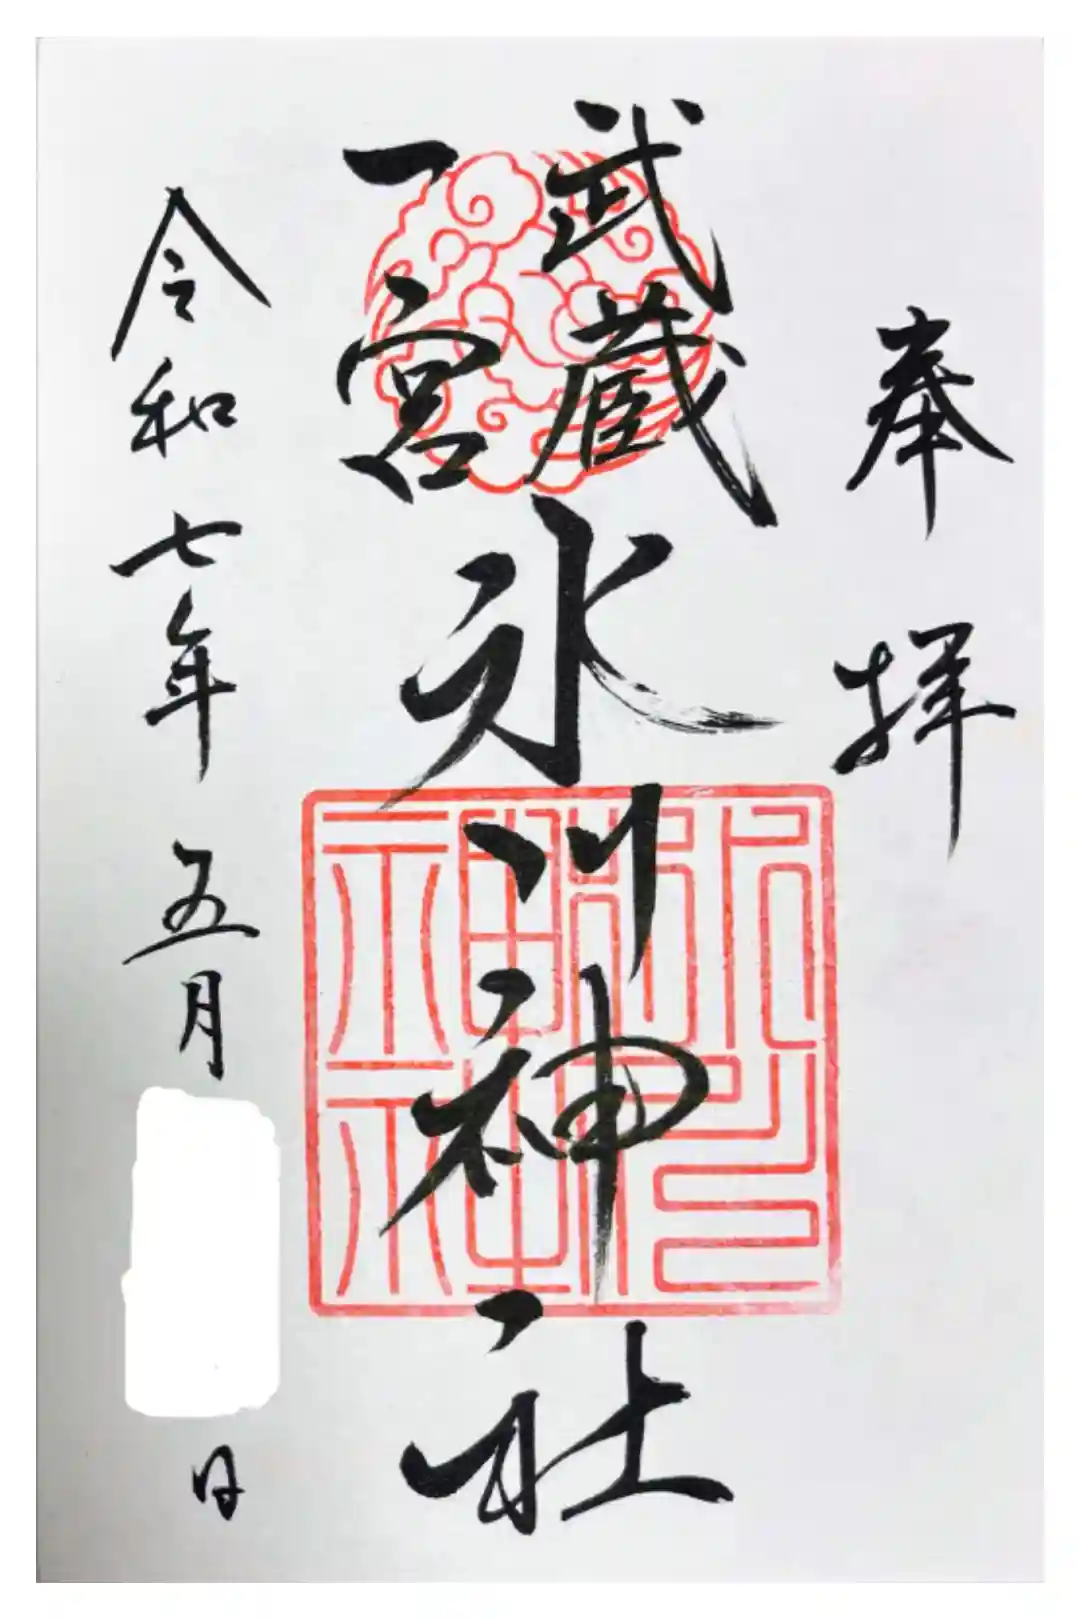 奉拝
武蔵
一宮
氷川神社
令和七年五月
日
氷川神社